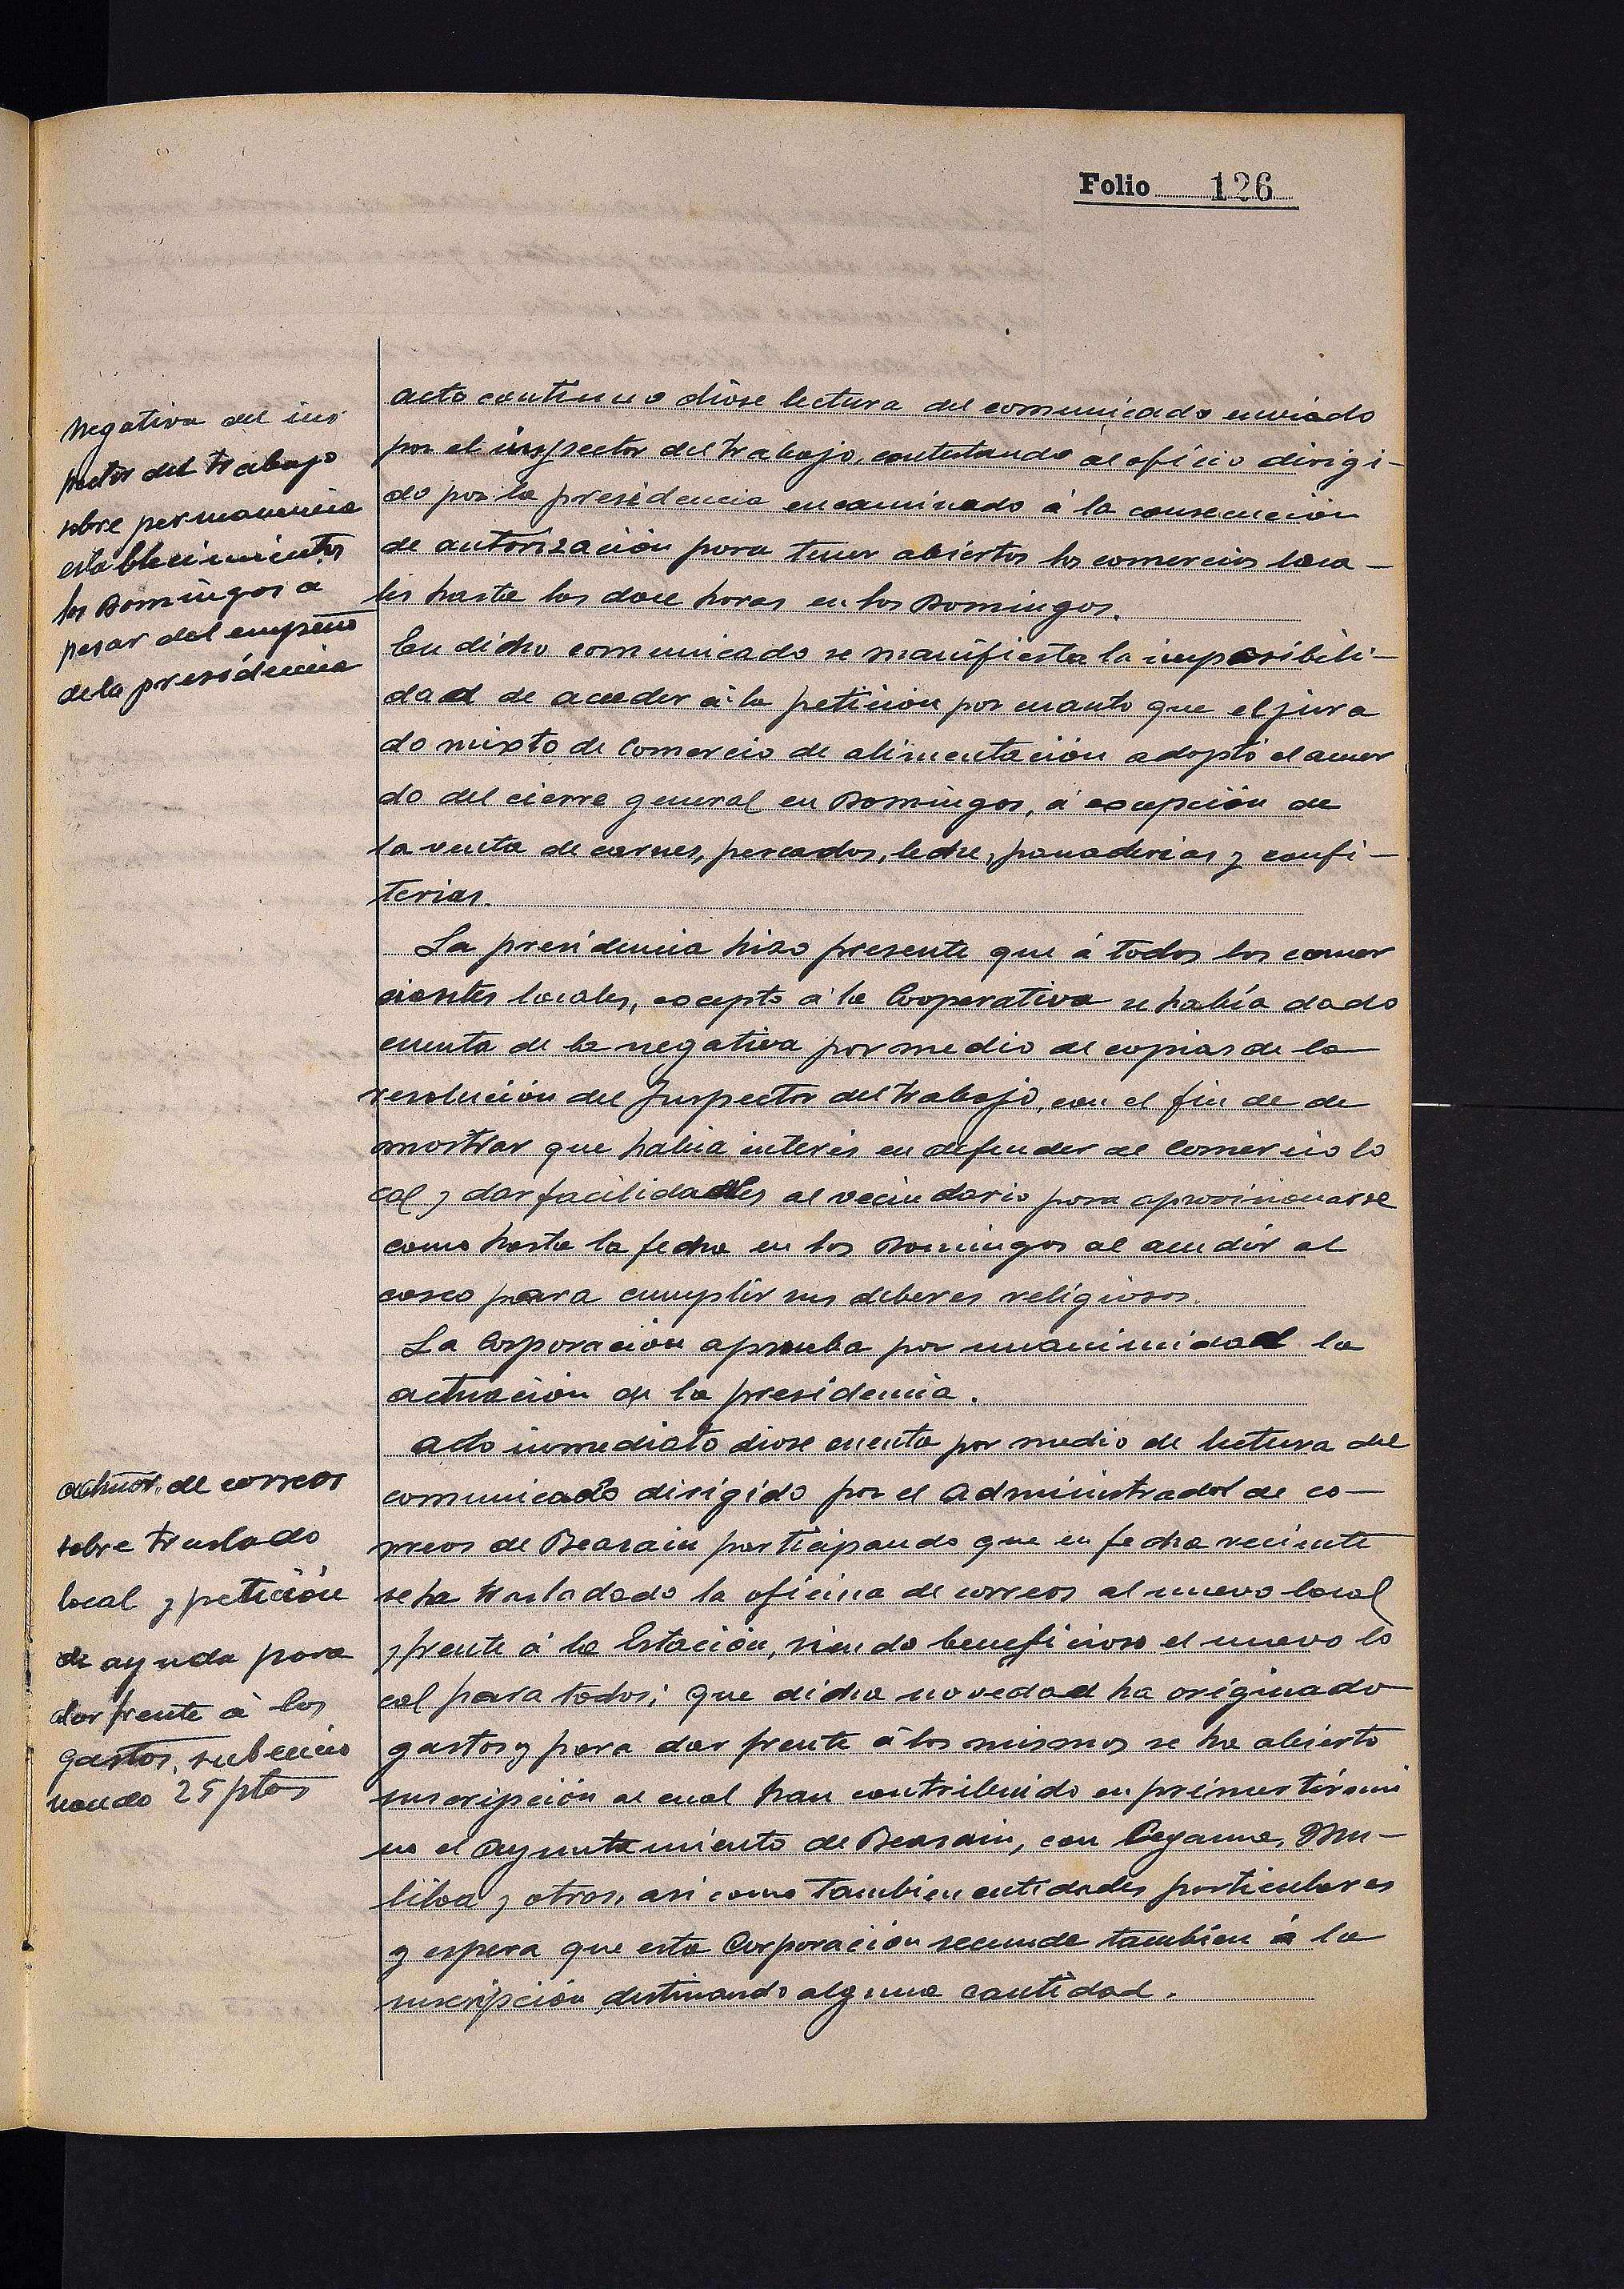 Folio 126
Negativa del ins
pector del trabajo
sobre permanencia
establecimientos
los Domingos a
pesar del empeño
de la presidencia
acto continuo dióse lectura del comunicado enviado
por el inspector del trabajo, contestando al oficio dirigi-
do por la presidencia encaminado á la consecución
de autorización para tener abiertos los comercios loca-
les hasta las doce horas en los Domingos.
En dicho comunicado se manifiesta la imposibili-
dad de acceder á la petición por cuanto que el jura
do mixto de Comercio de alimentación adoptó el acuer
do del cierre general en Domingos, á excepción de
la venta de carnes, pescados, leche, panaderias y confi-
terias.
La presidencia hizo presente que á todos los comer
ciantes locales, excepto á la Cooperativa se había dado
cuenta de la negativa por medio de copias de la
resolución del Inspector del trabajo, con el fin de de
mostrar que habia interés en defender al comercio lo
cal y dar facilidades al vecindario para aprovisionarse
como hasta la fecha en los Domingos al acudir al
casco para cumplir sus deberes religiosos.
La Corporación aprueba por unanimidad la
actuación de la presidencia.
Acto inmediato diose cuenta por medio de lectura del
comunicado dirigido por el Administrador de co-
rreos de Beasain participando que en fecha reciente
se ha trasladado la oficina de correos al nuevo local
frente á la Estación, siendo beneficioso el nuevo lo
cal para todos; que dicha novedad ha originado
gastos y para dar frente á los mismos se ha abierto
suscripción al cual han contribuido en primer térmi
no el Ayuntamiento de Beasain, con Cegama, Mu-
tiloa y otros, asi como tambien entidades particulares
y espera que esta Corporación secunde tambien á la
suscripción destinando alguna cantidad.
admor. de correos
sobre traslado
local y petición
de ayuda para
dar frente á los
gastos, subvencio
nando 25 ptas